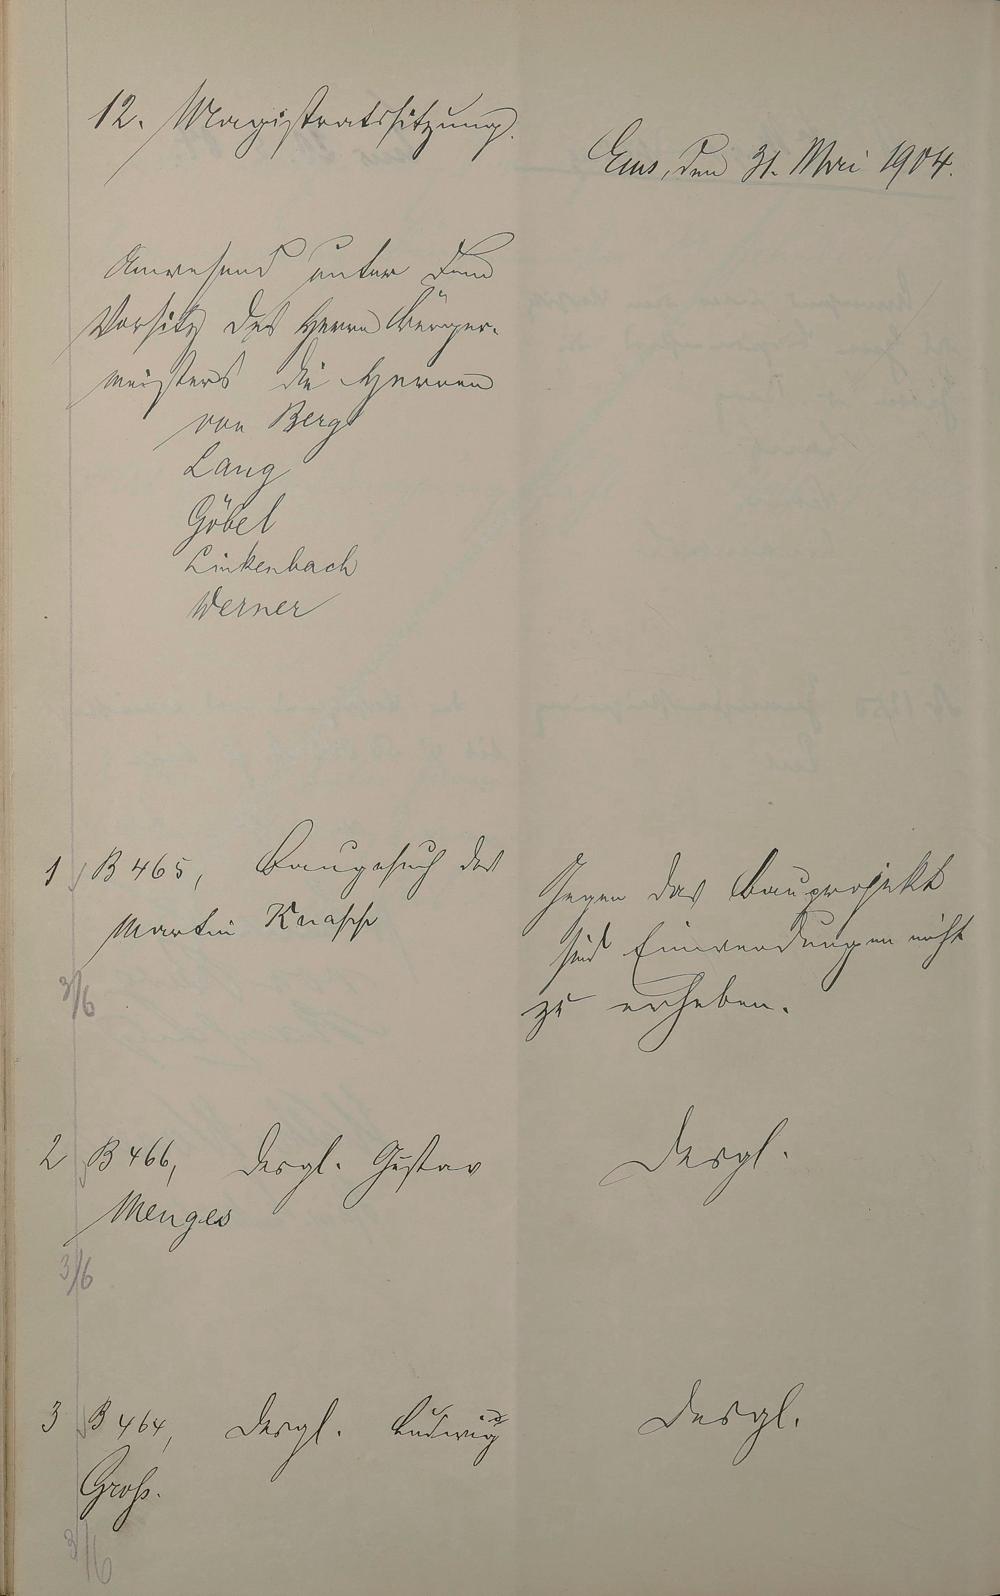 12. Magistratssitzung.
Ems, den 31. Mai 1904.
Anwesend unter dem
Vorsitz des Herrn Bürger-
meisters die Herren
von Berg
Lang
Göbel
Linkenbach
Werner
1 B 465, Baugesuch des
Martin Knapp
3/6
Gegen das Bauprojekt
sind Einwendungen nicht
zu erheben.
2 B 466, desgl. Gustav
Menges
3/6
desgl.
3 B 464, desgl. Ludwig
Groß.
3/6
desgl.